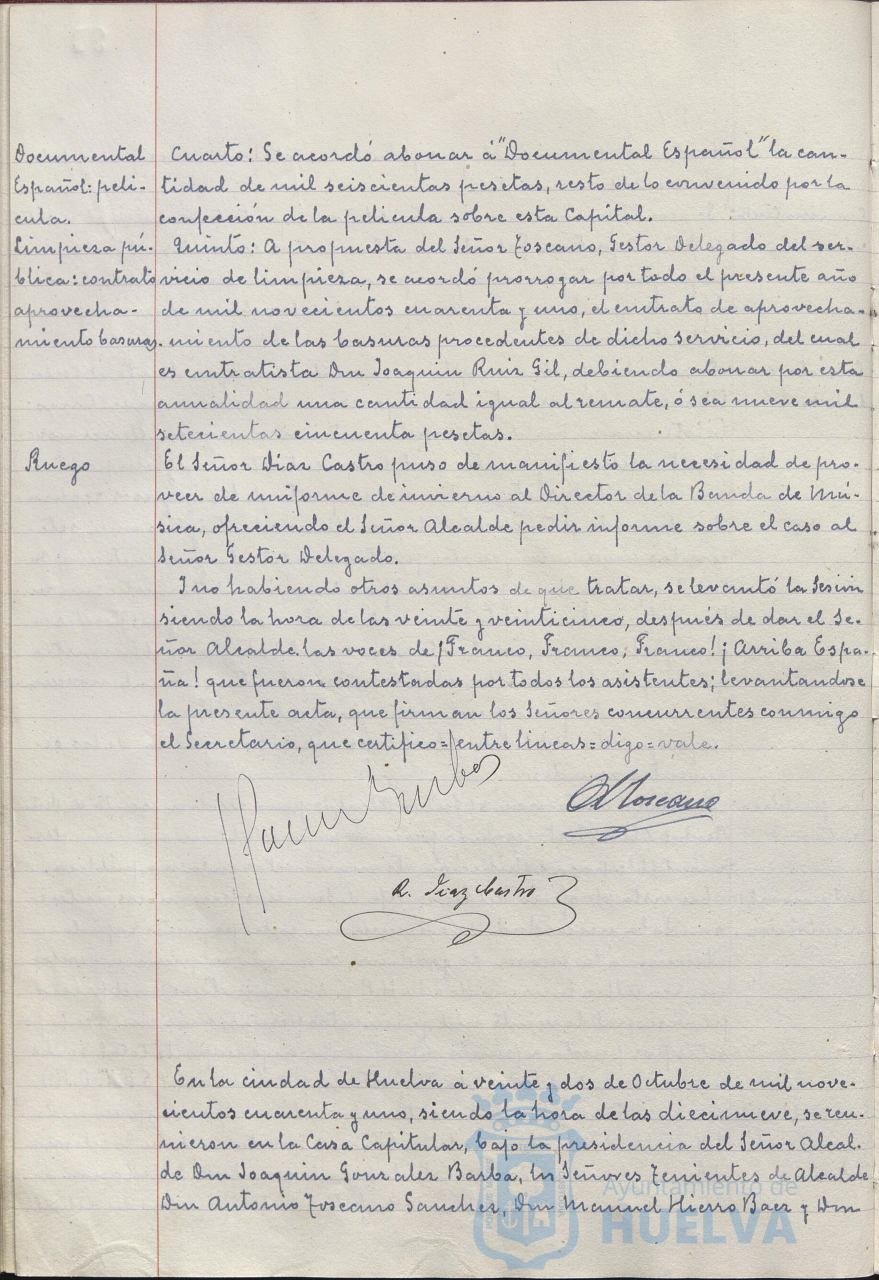 Documental
Español: peli-
cula.
Cuarto: Se acordó abonar á "Documental Español" la can-
tidad de mil seiscientas pesetas, resto de lo convenido por la
confección de la pelicula sobre esta Capital.
Limpieza pú-
blica: contrato
aprovecha-
miento basuras.
Quinto: A propuesta del Señor Toscano, Gestor Delegado del ser-
vicio de limpieza, se acordó prorrogar por todo el presente año
de mil novecientos cuarenta y uno, el contrato de aprovecha-
miento de las basuras procedentes de dicho servicio, del cual
es contratista Don Joaquin Ruiz Gil, debiendo abonar por esta
anualidad una cantidad igual al remate, ó sea nueve mil
setecientas cincuenta pesetas.
Ruego
El Señor Díaz Castro puso de manifiesto la necesidad de pro-
veer de uniforme de invierno al Director de la Banda de Mú-
sica, ofreciendo el Señor Alcalde pedir informe sobre el caso al
Señor Gestor Delegado.
I no habiendo otros asuntos de que tratar, se levantó la Sesión
siendo la hora de las veinte y veinticinco, después de dar el Se-
ñor Alcalde las voces de ¡Franco, Franco, Franco! ¡Arriba Espa-
ña! que fueron contestadas por todos los asistentes; levantandose
la presente acta, que firman los Señores concurrentes conmigo
el Secretario, que certifico=entre lineas=digo=vale.
A Toscano
R. Diaz Castro
En la ciudad de Huelva á veinte y dos de Octubre de mil nove-
cientos cuarenta y uno, siendo la hora de las diecinueve, se reu-
nieron en la Casa Capitular, bajo la presidencia del Señor Alcal-
de Don Joaquin Gonzalez Barba, los Señores Tenientes de Alcalde
Don Antonio Toscano Sanchez, Don Manuel Hierro Baez y Don
Ayuntamiento de
HUELVA